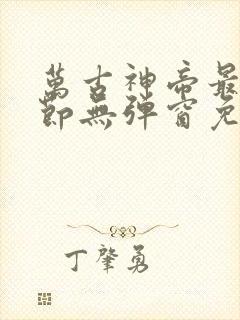 萬古神帝最
節無彈窗免
丁肇勇